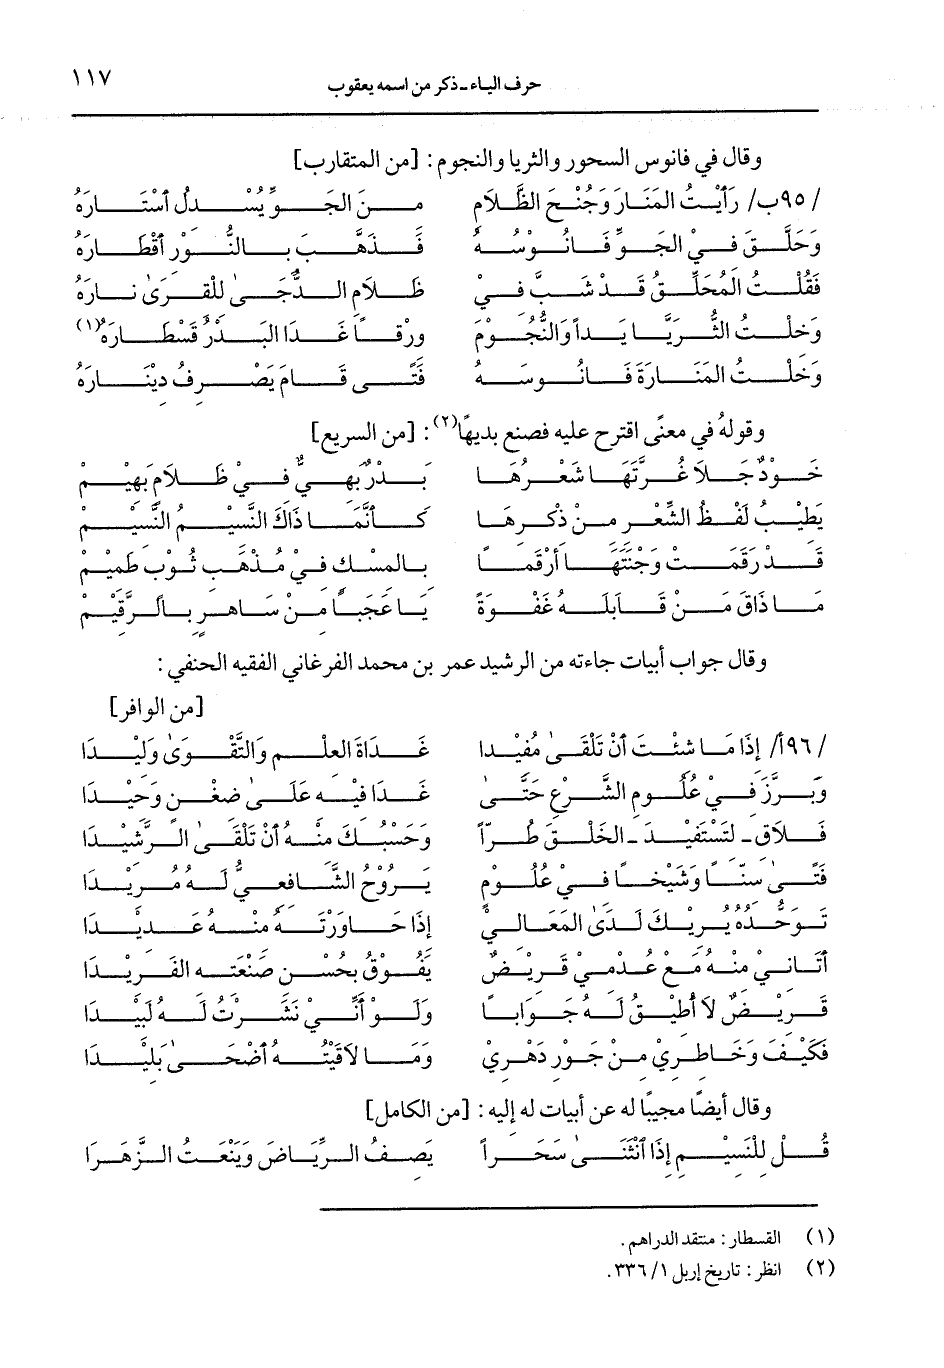 حرف الياء - ذكر من اسمه يعقوب ١١٧
وقال في فانوس السحور والثريا والنجوم: [من المتقارب]
/٩٥ب/ رَأَيْتُ المَنَارَ وَجُنْحَ الظَّلَامِ مِنَ الجَوِّ يُسْدِلُ أَسْتَارَهُ
وَحَلَّقَ فِيْ الجَوِّ فَانُوسُهُ فَذَهَّبَ بِالنُّورِ أَقْطَارَهُ
فَقُلْتُ المُحَلَّقُ قَدْ شَبَّ فِيْ ظَلَامِ الدُّجَىٰ لِلْقِرَىٰ نَارَهُ
وَخِلْتُ الثُّرَيَّا يَداً وَالنُّجُوْمَ وِرْقاً غَدَا البَدْرُ قَسْطَارَهُ(١)
وَخِلْتُ المَنَارَةَ فَانُوسَهُ فَتًى قَامَ يَصْرِفُ دِيْنَارَهُ
وقولهُ في معنًى اقترح عليه فصنع بديهًا(٢): [من السريع]
خَوْدٌ جَلَا غُرَّتَهَا شَعْرُهَا بَدْرٌ بَهِيٌّ فِيْ ظَلَامٍ بَهِيْمْ
يَطِيْبُ لَفْظُ الشِّعْرِ مِنْ ذِكْرِهَا كَأَنَّمَا ذَاكَ النَّسِيْمُ النَّسِيْمْ
قَدْ رَقَمَتْ وَجْنَتُهَا أَرْقَمًا بِالمِسْكِ فِيْ مُذْهَبِ ثَوْبٍ طَمِيْمْ
مَا ذَاقَ مَنْ قَابَلَهُ غَفْوَةً يَا عَجَباً مِنْ سَاهِرٍ بِالرَّقِيْمْ
وقال جواب أبيات جاءته من الرشيد عمر بن محمد الفرغاني الفقيه الحنفي:
[من الوافر]
/٩٦أ/ إِذَا مَا شِئْتَ أَنْ تَلْقَىٰ مُفِيْدا غَدَاةَ العِلْمِ وَالتَّقْوَىٰ وَلِيْدَا
وَبَرَّزَ فِيْ عُلُومِ الشَّرْعِ حَتَّىٰ غَدَا فِيْهِ عَلَىٰ ضِغْنٍ وَحِيْدَا
فَلَاقِ - لِتَسْتَفِيْدَ - الخَلْقَ طُرّاً وَحَسْبُكَ مِنْهُ أَنْ تَلْقَىٰ الرَّشِيْدَا
فَتًىٰ سِنّاً وَشَيْخاً فِيْ عُلُوْمٍ يَرُوْحُ الشَّافِعِيُّ لَهُ مُرِيْدَا
تَوَحُّدُهُ يُرِيْكَ لَدَىٰ المَعَالِيْ إِذَا حَاوَرْتَهُ مِنْهُ عَدِيْدَا
أَتَانِيْ مِنْهُ مَعْ عُدْمِيْ قَرِيْضٌ يَفُوْقُ بِحُسْنِ صَنْعَتِهِ الفَرِيْدَا
قَرِيْضٌ لَا أُطِيْقُ لَهُ جَوَاباً وَلَوْ أَنِّيْ نَشَرْتُ لَهُ لَبِيْدَا
فَكَيْفَ وَخَاطِرِيْ مِنْ جَوْرِ دَهْرِيْ وَمَا لَاقَيْتُهُ أَضْحَىٰ بَلِيْدَا
وقال أيضًا مجيبًا له عن أبيات له إليه: [من الكامل]
قُلْ لِلنَّسِيْمِ إِذَا ٱنْثَنَىٰ سَحَراً يَصِفُ الرِّيَاضَ وَيَنْعَتُ الزَّهَرَا
(١) القسطار: منتقد الدراهم.
(٢) انظر: تاريخ إربل ١/ ٣٣٦.